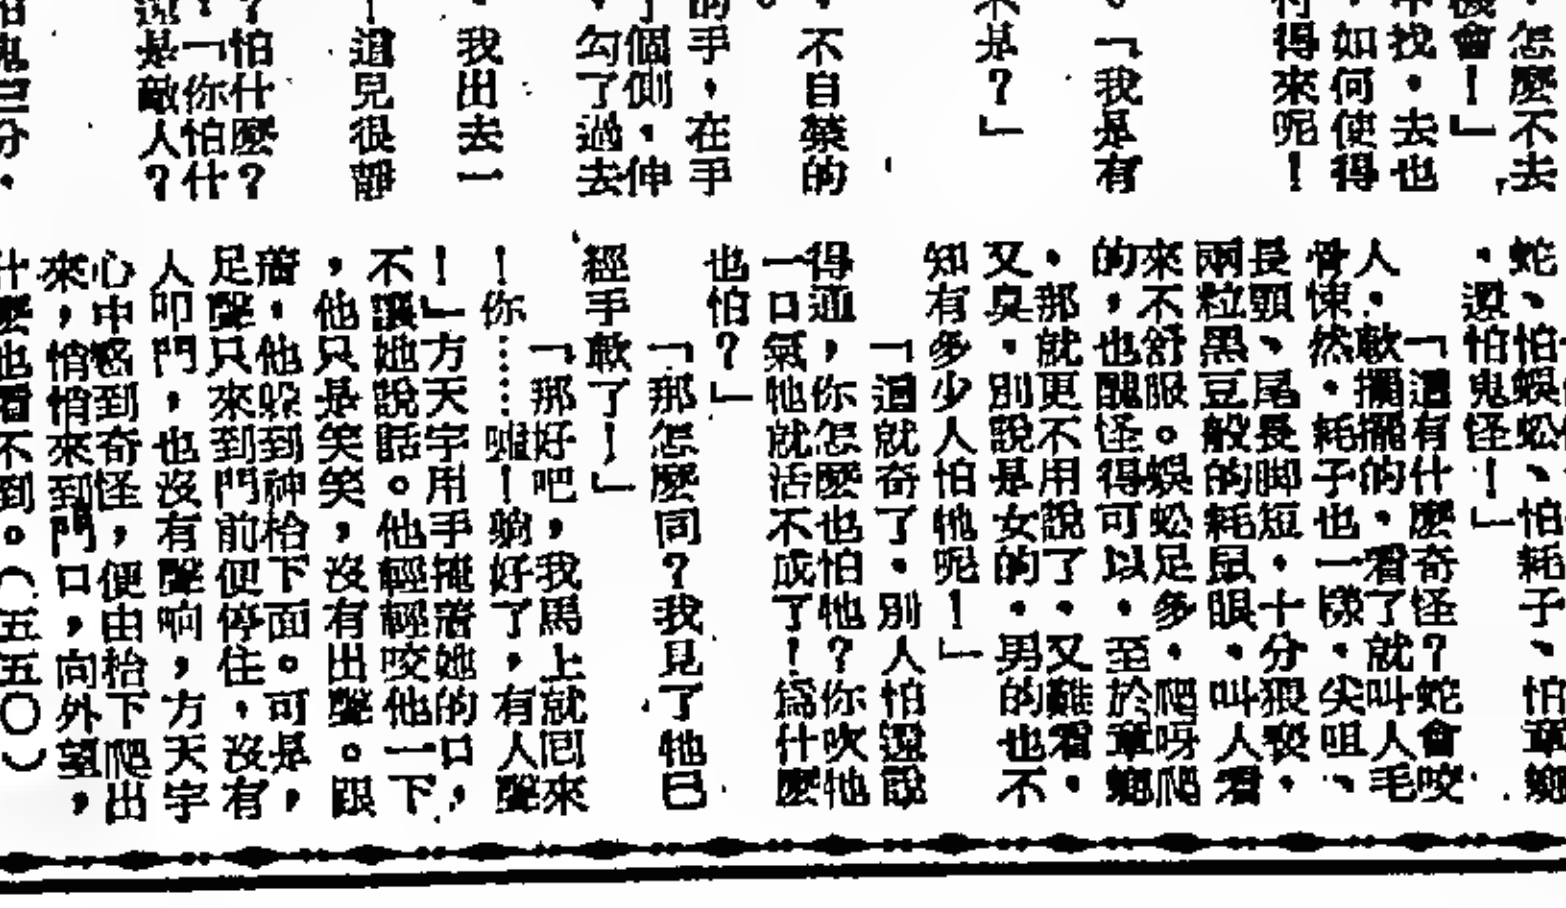 怎麼不去
機會！」
中找，去也
，如何使得
得來呢！
。「我是有
不是？」
，不自禁的
的手，在手
個側，伸
，勾了過去
，我出去一
！這兒很靜
？怕什麼？
！「你怕什
還是敵人？
蛇、怕蜈蚣、怕耗子、怕蟑螂
，還怕鬼怪！」
「這有什麼奇怪？蛇會咬
人，敝擺擺的，看了就叫人毛
骨悚然，耗子也一樣，尖咀、
長頸、尾長脚短，十分猥褻，
兩粒黑豆般的耗鼠眼，叫人看
來不舒服。蜈蚣足多，爬呀爬
的，也醜怪得可以，至於蟑螂
，那就更不用說了，又難看，
又臭，別說是女的，男的也不
知有多少人怕牠呢！」
「這就奇了，別人怕還說
得通，你怎麼也怕牠？你吹牠
一口氣牠就活不成了！爲什麼
也怕？」
「那怎麼同？我見了牠已
經手軟了！」
「那好吧，我馬上就囘來
！你……噓！躺好了，有人聲
！」方天宇用手掩着她的口，
不讓她說話。他輕輕咬他一下
，他只是笑笑，沒有出聲。跟
着，他躱到神枱下面。可是，
足聲只來到門前便停住，沒有
人叩門，也沒有聲响，方天宇
心中感到奇怪，便由枱下爬出
來，悄悄來到門口，向外望，
什麼也看不到。（五五〇）